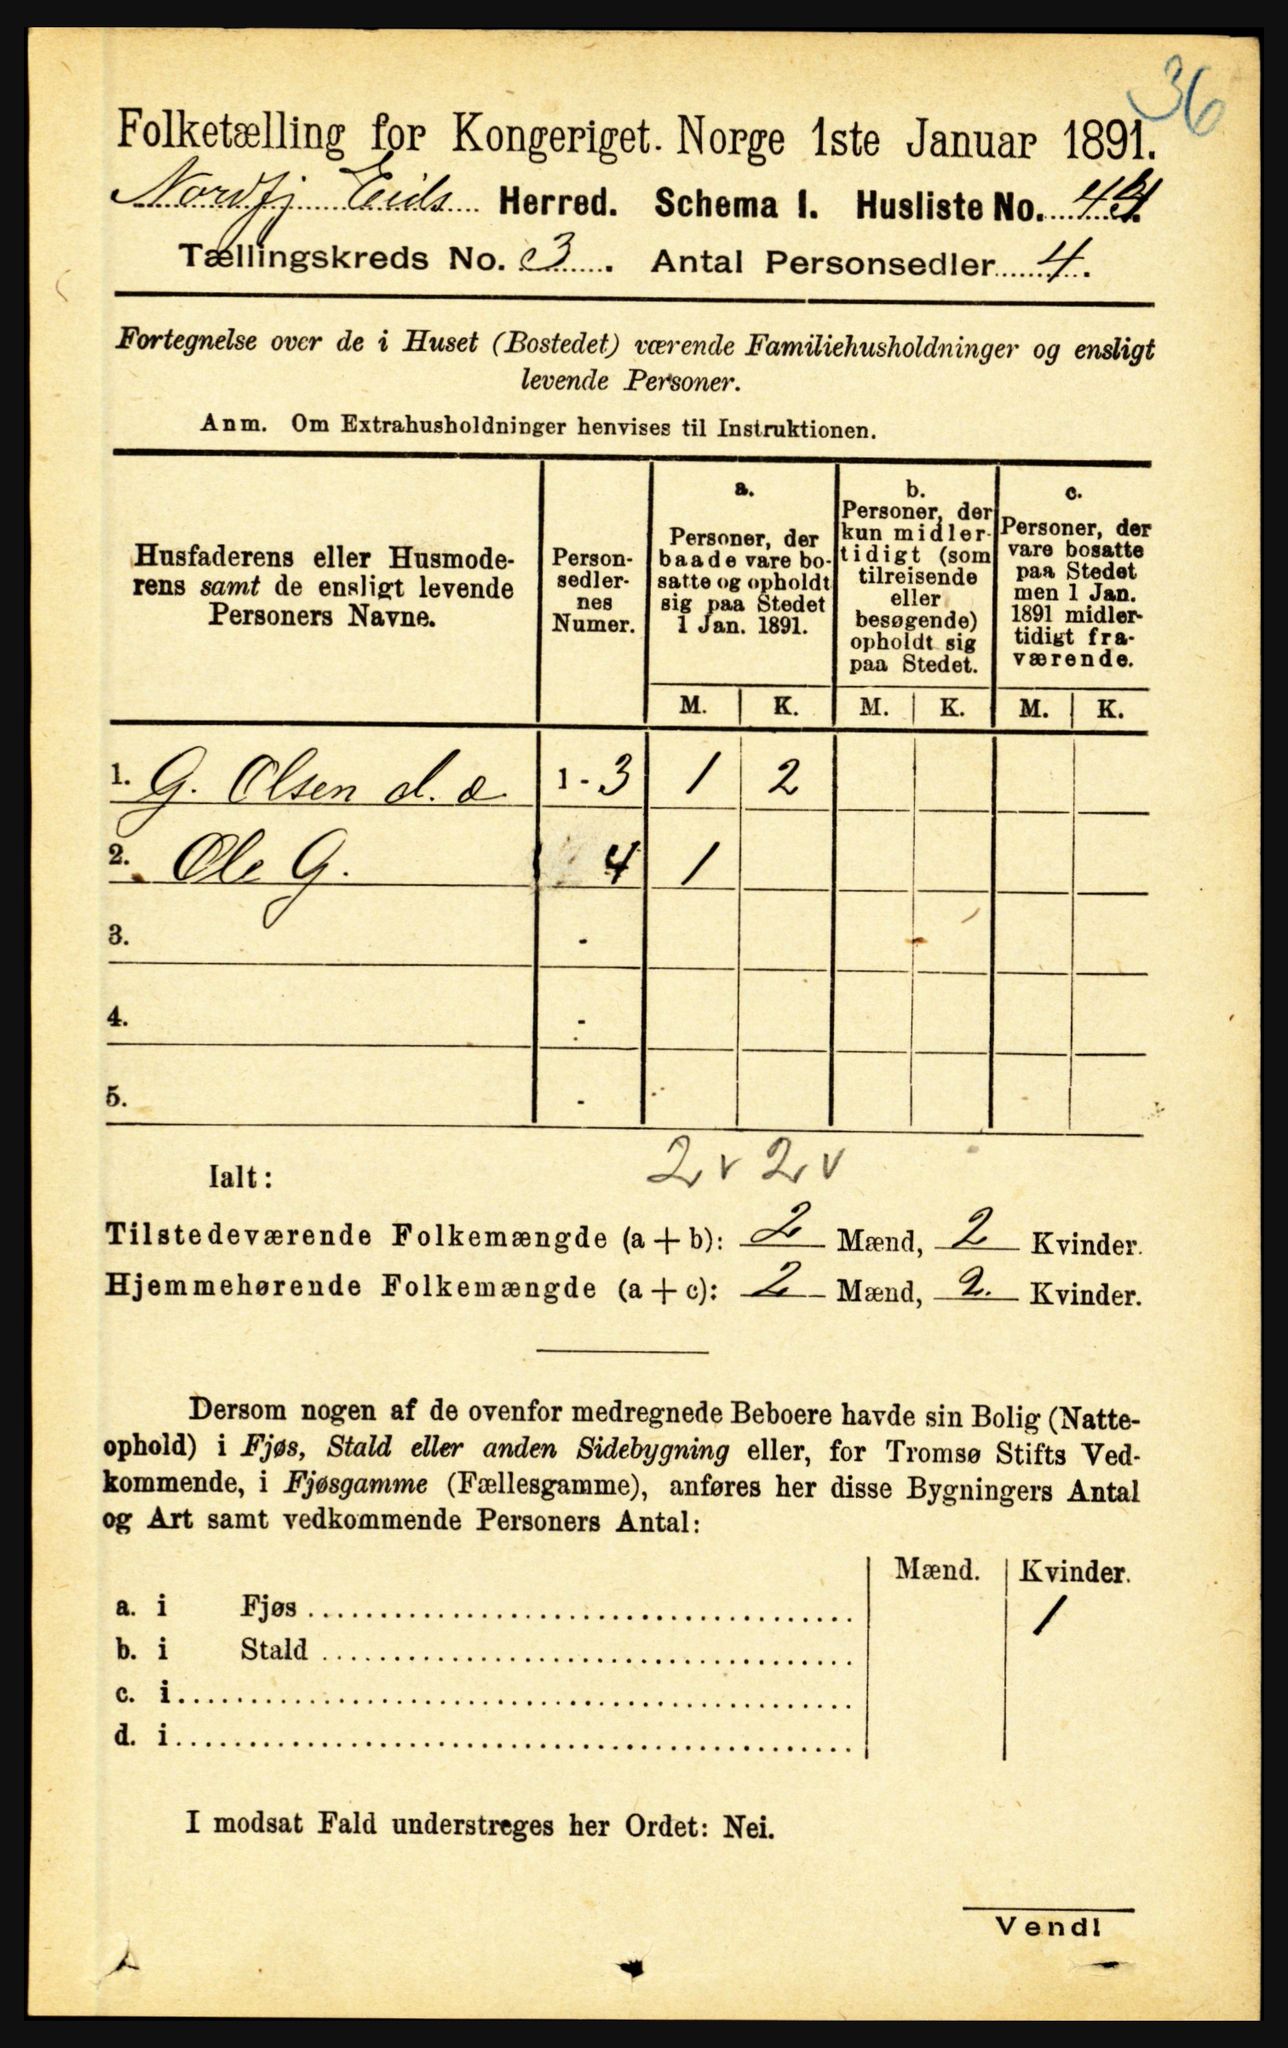 36
Folketælling for Kongeriget Norge 1ste Januar 1891.
Nordfj Eids Herred. Schema I. Husliste No. 44
Tællingskreds No. 3. Antal Personsedler 4.
Fortegnelse over de i Huset (Bostedet) værende Familiehusholdninger og ensligt
levende Personer.
Anm. Om Extrahusholdninger henvises til Instruktionen.
Husfaderens eller Husmode-
rens samt de ensligt levende
Personers Navne.
Person-
sedler-
nes
Numer.
a.
Personer, der
baade vare bo-
satte og opholdt
sig paa Stedet
1 Jan. 1891.
b.
Personer, der
kun midler-
tidigt (som
tilreisende
eller
besøgende)
opholdt sig
paa Stedet.
c.
Personer, der
vare bosatte
paa Stedet
men 1 Jan.
1891 midler-
tidigt fra-
værende.
M. K. M. K. M. K.
1. G. Olsen d. æ 1 - 3 1 2
2. Ole G. 4 1
3. -
4. -
5. -
2 v 2 v
Ialt:
Tilstedeværende Folkemængde (a + b): 2 Mænd, 2 Kvinder.
Hjemmehørende Folkemængde (a + c): 2 Mænd, 2. Kvinder.
Dersom nogen af de ovenfor medregnede Beboere havde sin Bolig (Natte-
ophold) i Fjøs, Stald eller anden Sidebygning eller, for Tromsø Stifts Ved-
kommende, i Fjøsgamme (Fællesgamme), anføres her disse Bygningers Antal
og Art samt vedkommende Personers Antal:
Mænd. Kvinder.
a. i Fjøs 1
b. i Stald
c. i
d. i
I modsat Fald understreges her Ordet: Nei.
Vend!